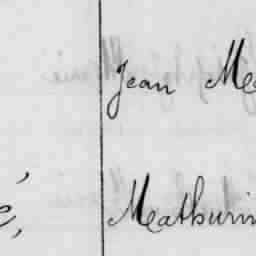 Jean Me
é, Mathurin